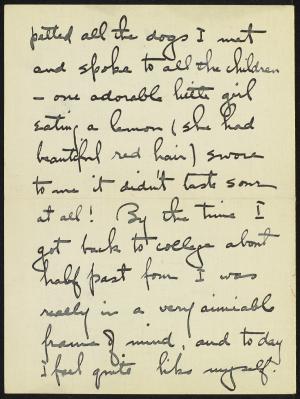 petted all the dogs I met
and spoke to all the children
– one adorable little girl
eating a lemon (she had
beautiful red hair) swore
to me it didn't taste sour
at all! By the time I
got back to college about
half past four I was
really in a very aimiable
frame of mind, and today
I feel quite like myself.